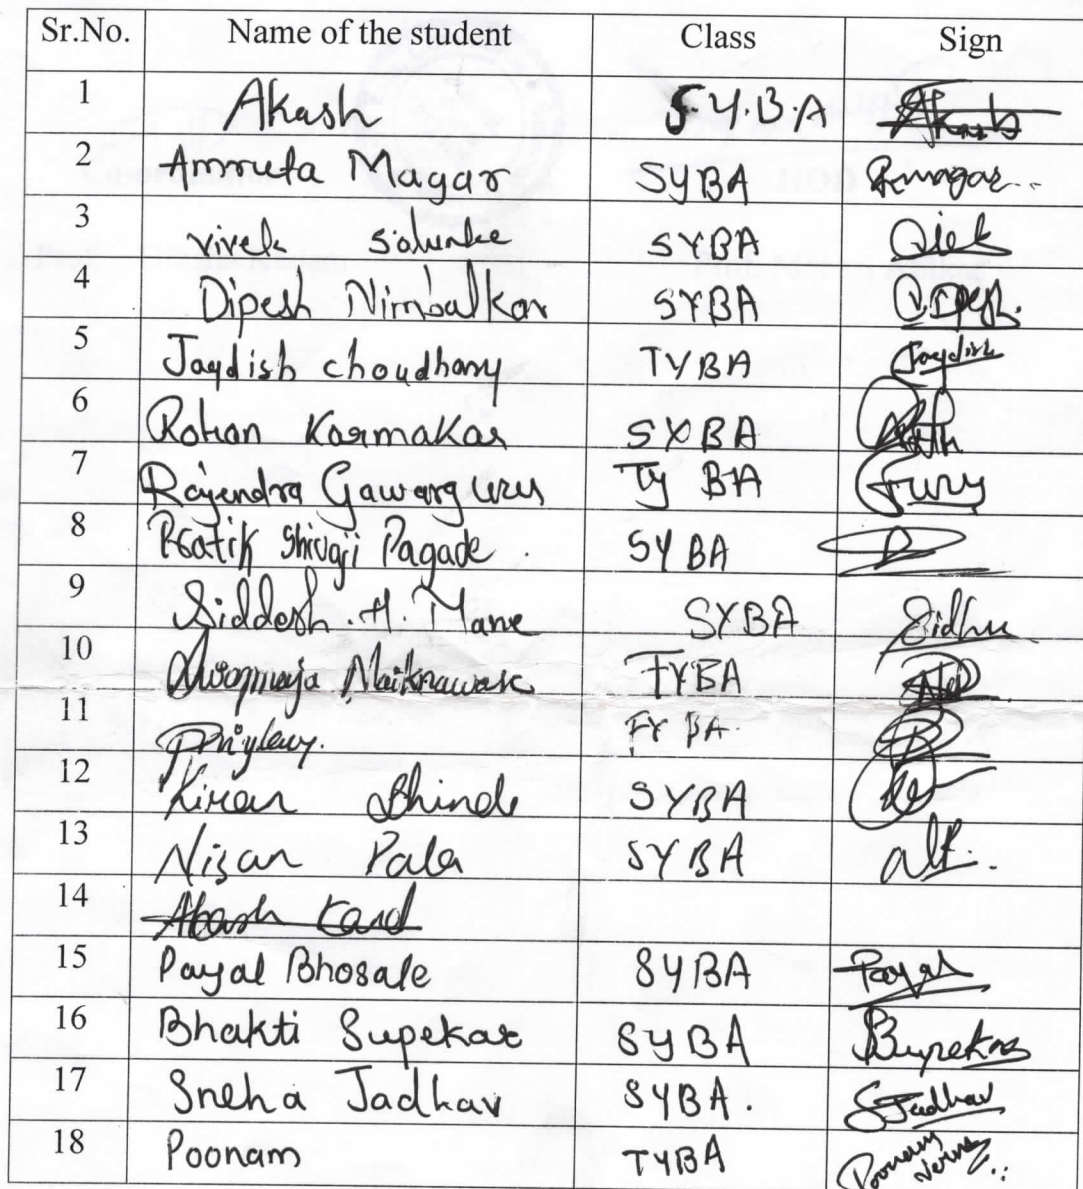 Sr.No. Name of the student Class Sign
1 Akash S.Y.B.A Akash
2 Amruta Magar SYBA Rmagar
3 Vivek Salunke SYBA
4 Dipesh Nimbalkar SYBA
5 Jaydish choudhary TYBA Jaydish
6 Rohan Karmakar SYBA
7 Rajendra Gawarguru Ty BA Guru
8 Pratik Shivaji Pagade SYBA
9 Siddesh .H. Mane SYBA Sidhu
10 Naiknaware TYBA
11 FYBA
12 Kiran Shinde SYBA
13 Nisan Pala SYBA
14 Akash Kand
15 Payal Bhosale SYBA Payal
16 Bhakti Supekar SYBA Bsupekar
17 Sneha Jadhav SYBA. SJadhav
18 Poonam TYBA Poonam Verma